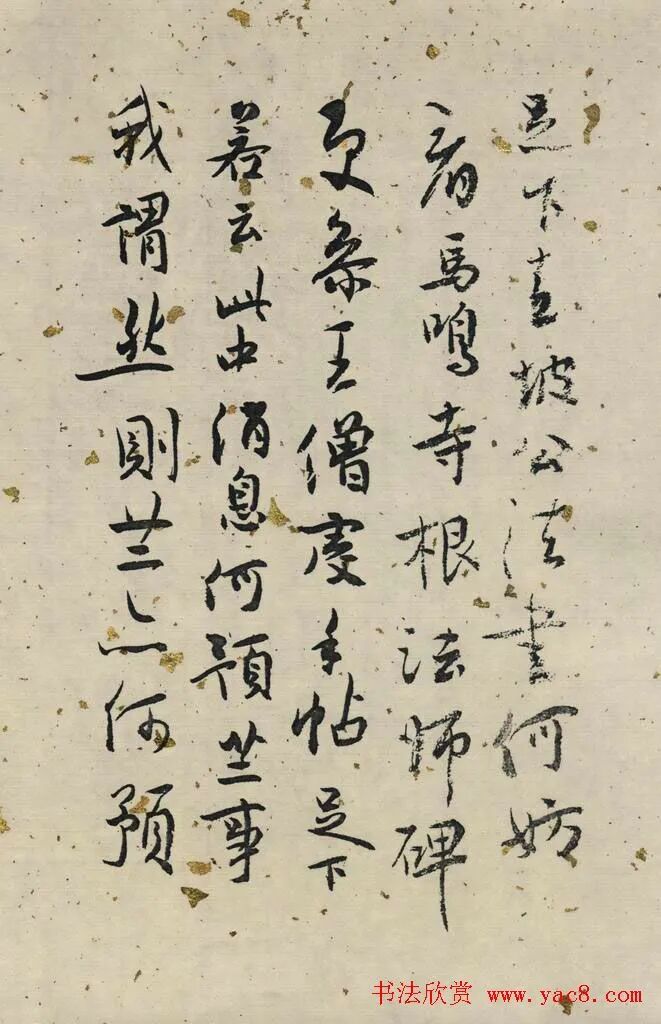 足下喜坡公法書何妨
看馬鳴寺根法師碑
更参王僧虔手帖足下
若云此中消息何預事
我謂然則亦何預
书法欣赏 www.yac8.com